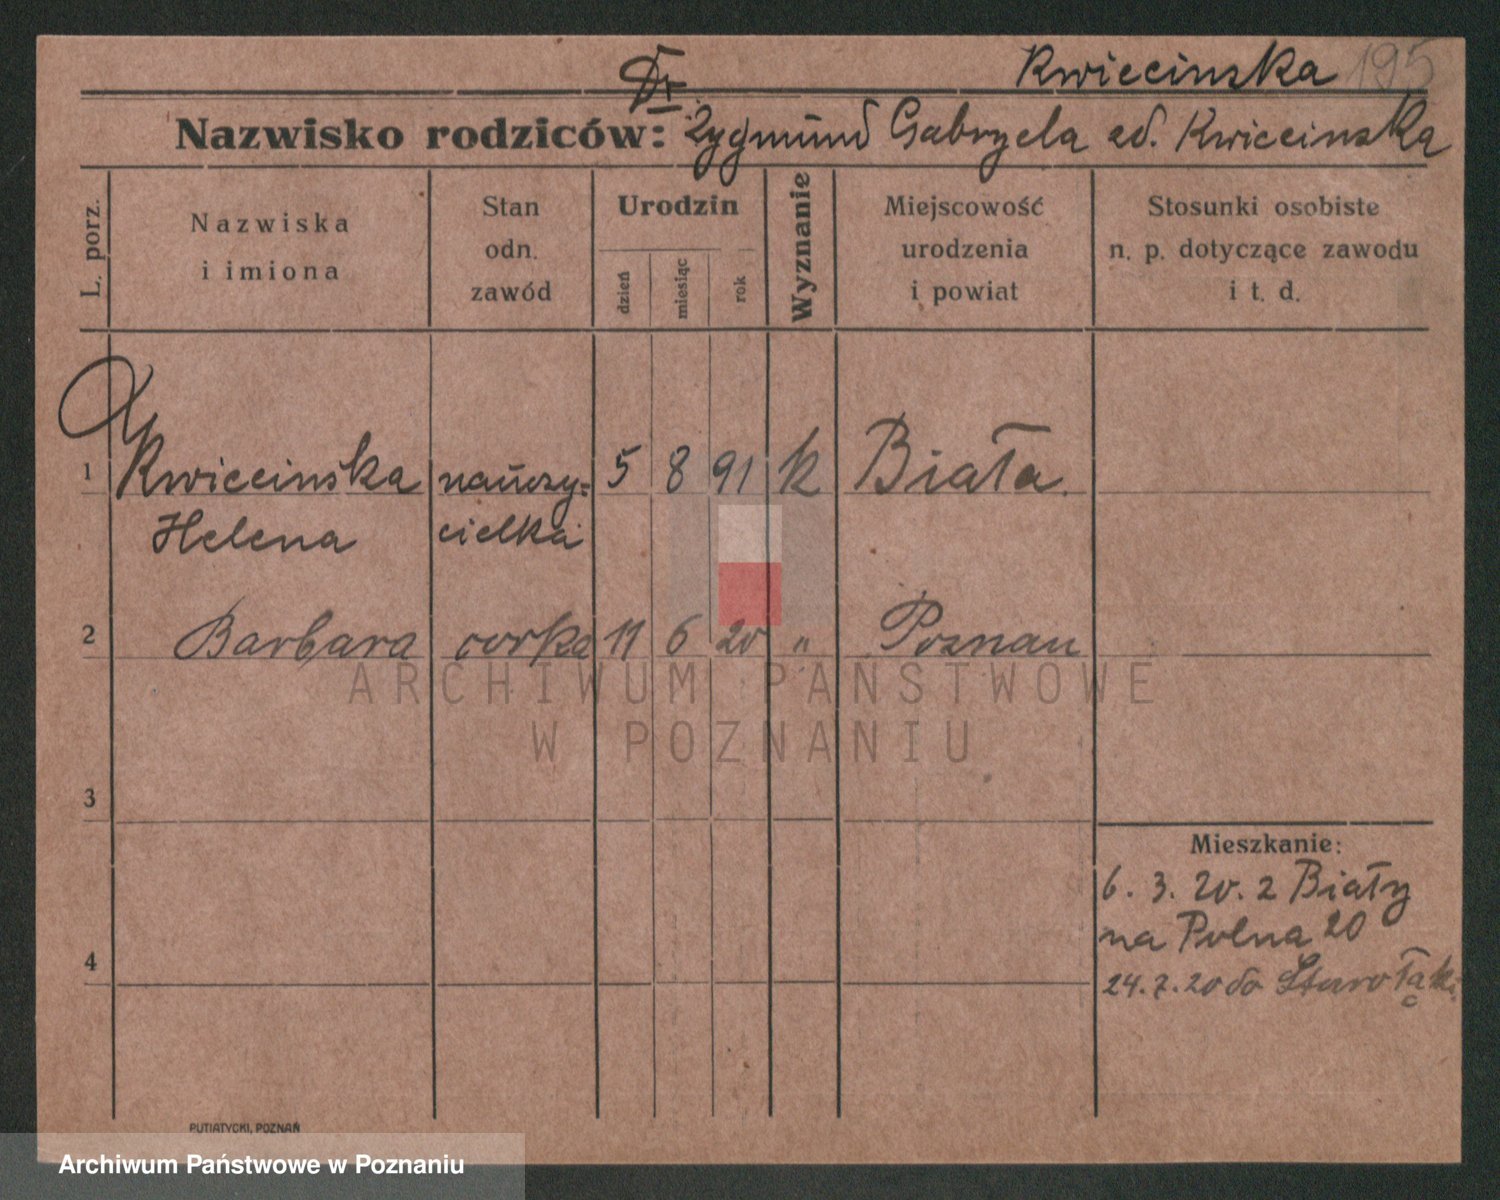 Kwiecinska 195
Dr
Nazwisko rodziców: Zygmund Gabryela zd. Kwiecinska
L. porz.
Nazwiska
i imiona
Stan
odn.
zawód
Urodzin
dzień
miesiąc
rok
Wyznanie
Miejscowość
urodzenia
i powiat
Stosunki osobiste
n. p. dotyczące zawodu
i t. d.
1 Kwiecinska nauczy= 5 8 91 k Biała.
Helena cielka
2 Barbara corka 11 6 20 " Poznan
ARCHIWUM PAŃSTWOWE
W POZNANIU
3
Mieszkanie:
6. 3. 20. z Biały
na Polna 20
4
24.7.20 do Starołąki
PUTIATYCKI, POZNAŃ
Archiwum Państwowe w Poznaniu